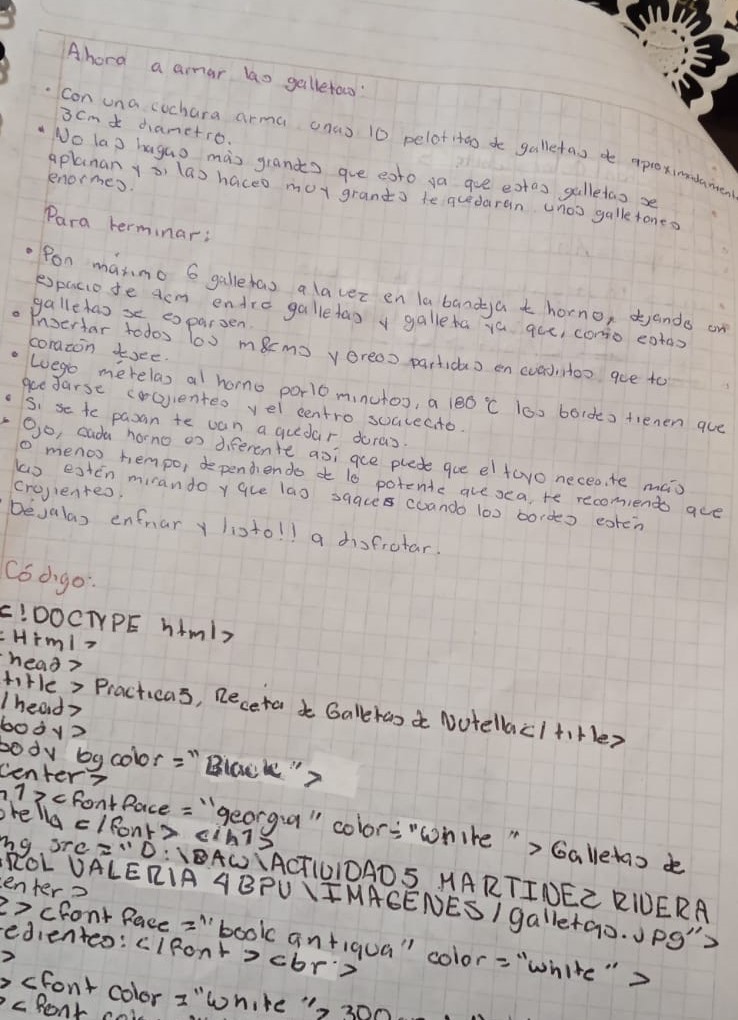 Ahora a armar las galletas:
• Con una cuchara arma unas 10 pelotitas de galletas de aproximadament
3cm de diametro.
• No las hagas más grandes que esto ya que estas galletas se
aplanan y si las haces muy grandes te quedaran unos galletones
enormes.
Para terminar:
• Pon máximo 6 galletas a la vez en la bandeja de horno, dejando un
espacio de 4cm entre galletas y galleta ya que, como estas
galletas se esparsen.
• Insertar todos los m&ms y oreos partidas en cuadritos que tu
corazón desee.
• Luego metelas al horno por 10 minutos, a 180 °C los bordes tienen que
quedarse crojientes y el centro suavecito.
• Si se te pasan te van a quedar duras.
• Ojo, cada horno es diferente asi que puede que el tuyo necesite más
o menos tiempo, dependiendo de lo potente que sea, te recomiendo que
las estén mirando y que las saques cuando los bordes estén
crojientes.
• Dejalas enfriar y listo!! a disfrutar.
Código:
<!DOCTYPE html>
<Html>
head>
title> Practica5, Receta de Galletas de Nutella</title>
/head>
body>
body bgcolor="Black">
center>
h1><font face="georgia" color="white">Galletas de
tella </font> </h1>
mg src="D:\DAW\ACTIVIDAD5 MARTINEZ RIVERA
ROL VALERIA 4BPV\IMAGENES/galletas.jpg">
enter>
2><font face="book antiqua" color="white">
edientes:</font><br>
>
><font color="white">300
<font